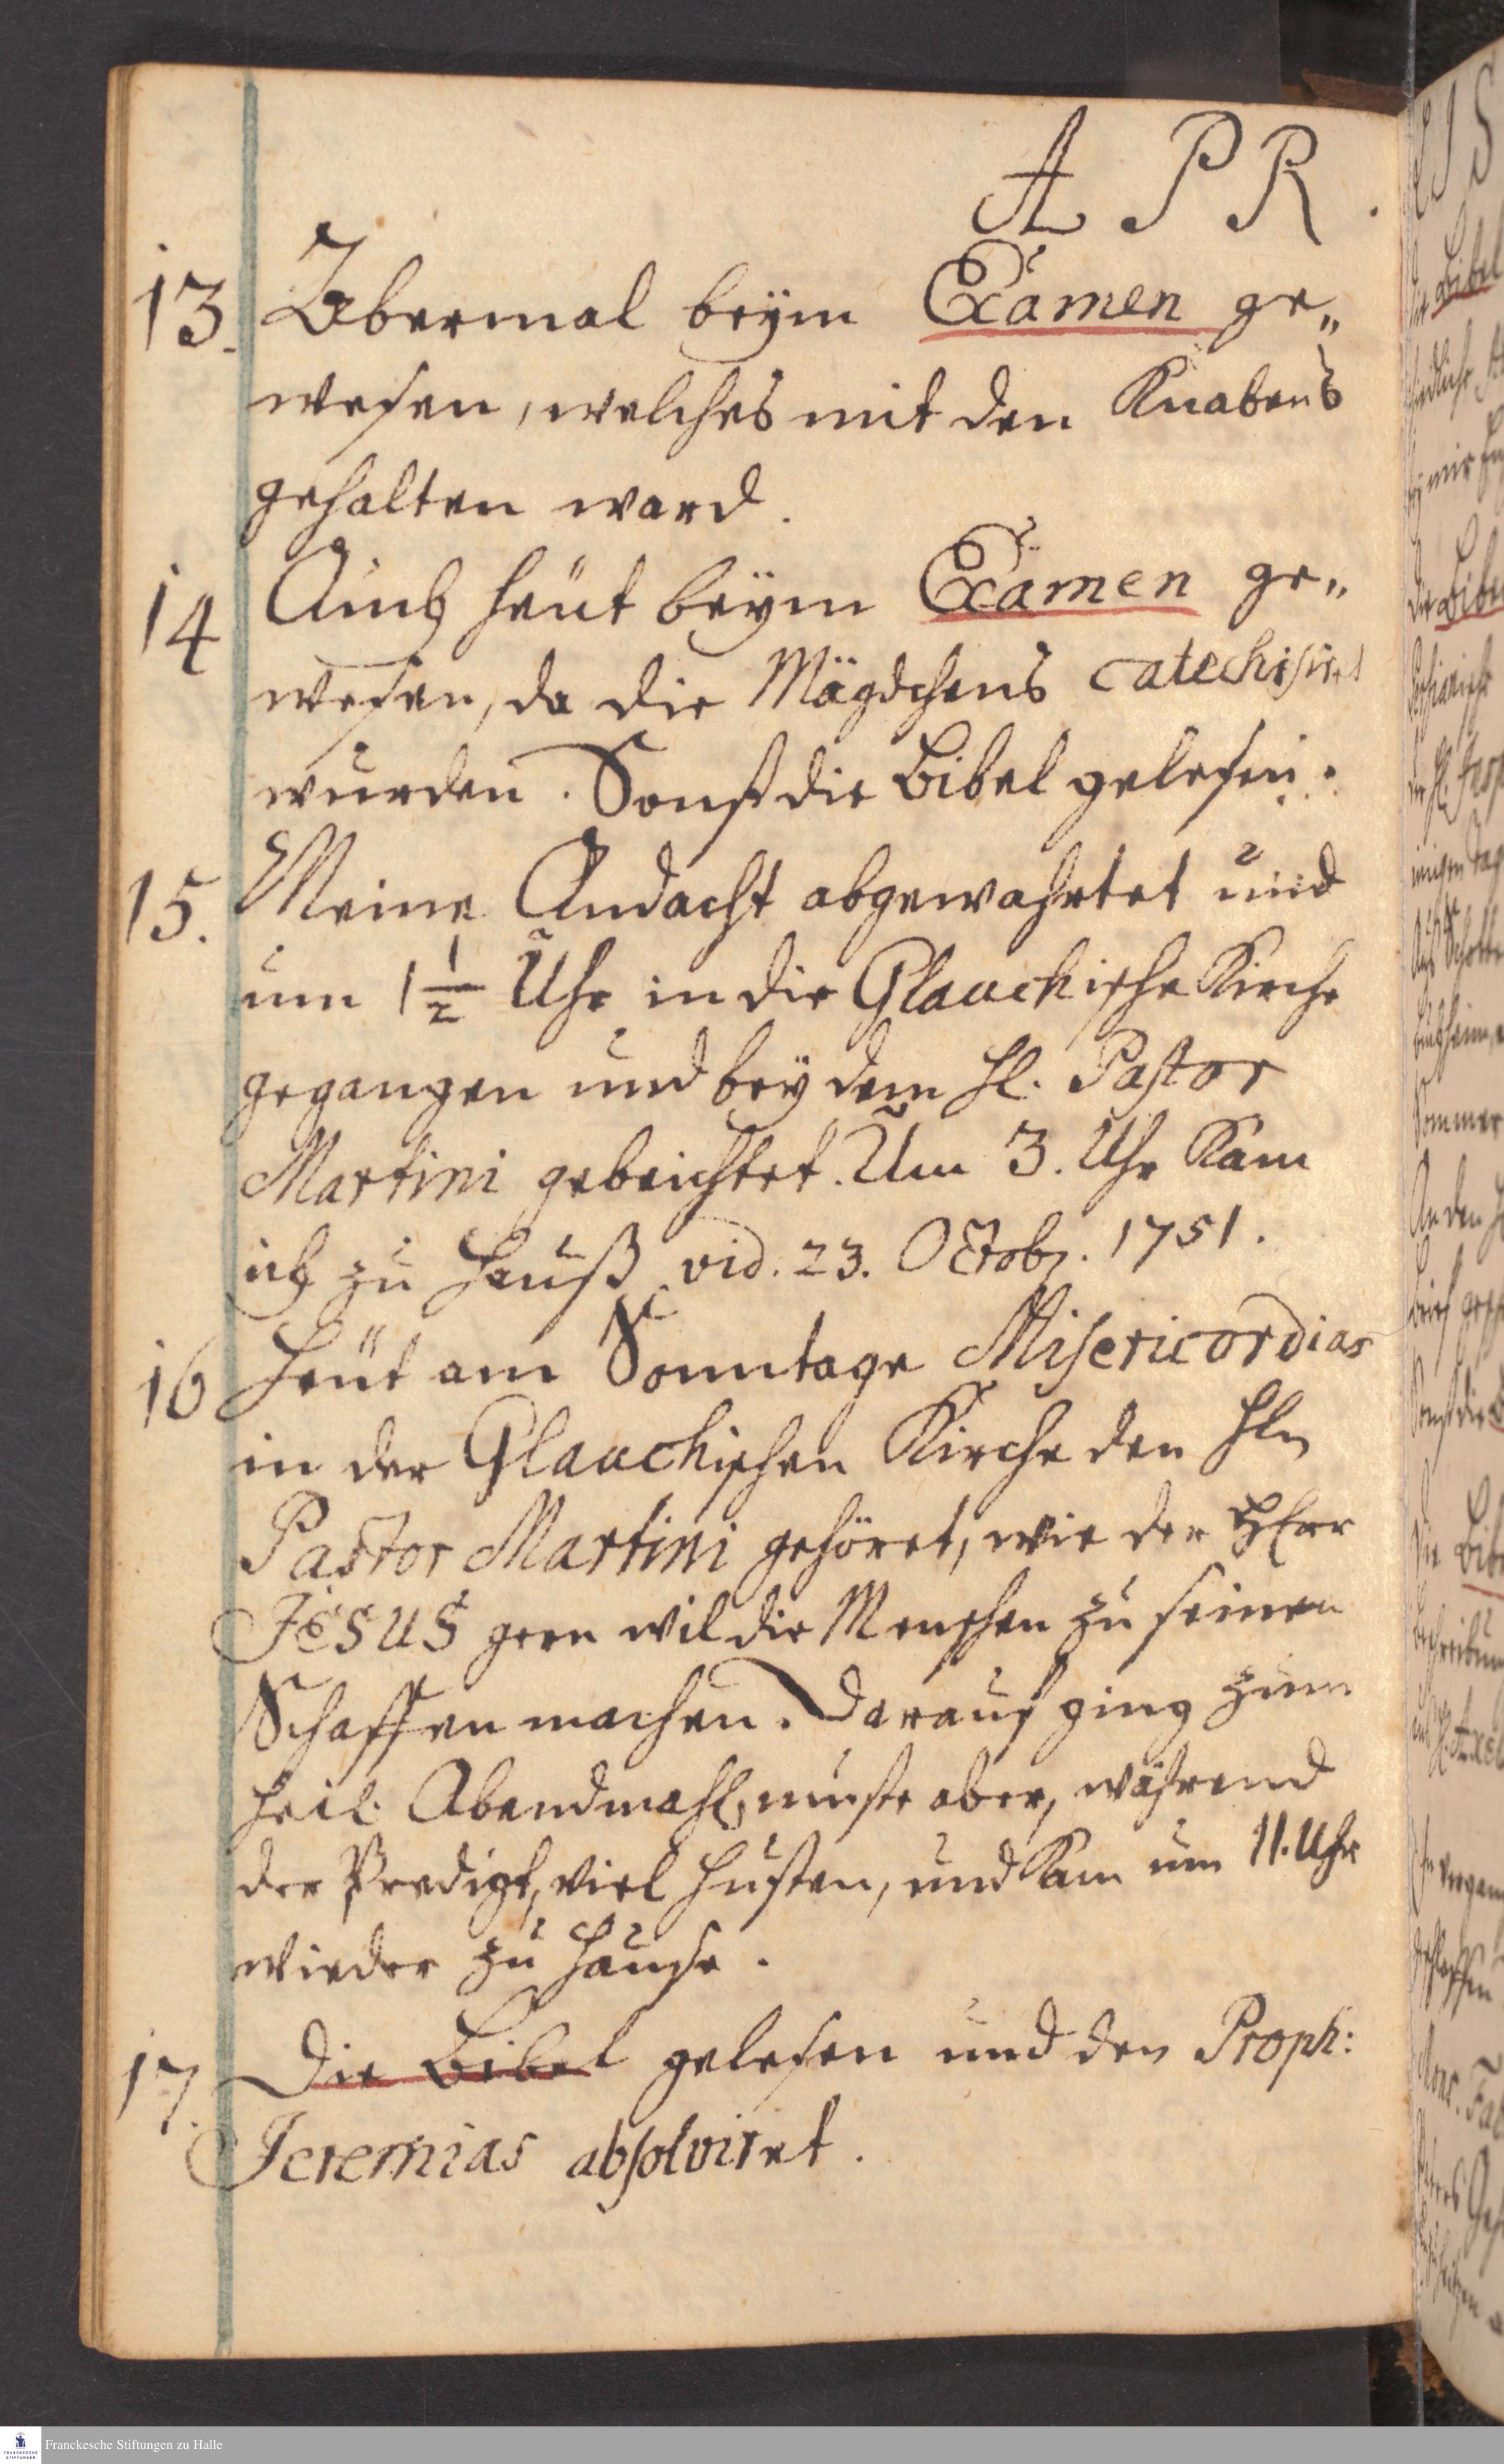 APR.
13. Abermal beÿm Examen ge„
wesen, welches mit den Knabens
gehalten ward.
14 Auch heüt beÿm Examen ge„
wesen, da die Mägdchens catechisiret
wurden. Sonst die Bibel gelesen.
15. Meine Andacht abgewahrtet und
um 1 1/2 Uhr in die Glauchische Kirche
gegangen und beÿ dem H. Pastor
Martini gebeichtet. Um 3. Uhr Kam
ich zu Hauß vid. 23. Octobr. 1751.
16 Heüt am Sonntage Misericordias
in der Glauchischen Kirche den Hln
Pastor Martini gehöret, wie der HErr
JESUS gern wil die Menschen zu seinen
Schaffen machen. Darauf ging zum
heil. Abendmahl, muste aber, während
der Predigt, viel husten, und Kam um 11. Uhr
wieder zu Hause.
17. Die Bibel gelesen und den Proph:
Jeremias absolviret.
Franckesche Stiftungen zu Halle